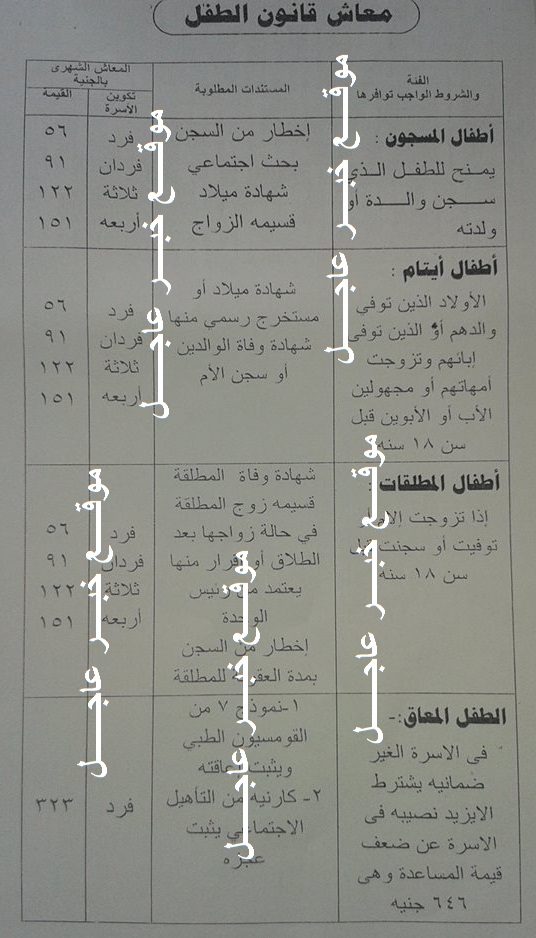 معاش قانون الطفل
الفئة
والشروط الواجب توافرها
المستندات المطلوبة
المعاش الشهرى
بالجنية
تكوين
الأسرة
القيمة
أطفال المسجون :
يمنح للطفل الذي
سجن والدة أو
ولدته
إخطار من السجن
بحث اجتماعي
شهادة ميلاد
قسيمه الزواج
فرد ٥٦
فردان ٩١
ثلاثة ١٢٢
أربعه ١٥١
أطفال أيتام :
الأولاد الذين توفي
والدهم أو الذين توفى
إبائهم وتزوجت
أمهاتهم أو مجهولين
الأب أو الأبوين قبل
سن ١٨ سنه
شهادة ميلاد أو
مستخرج رسمي منها
شهادة وفاة الوالدين
أو سجن الأم
فرد ٥٦
فردان ٩١
ثلاثة ١٢٢
أربعه ١٥١
أطفال المطلقات :
إذا تزوجت إلام أو
توفيت أو سجنت قبل
سن ١٨ سنه
شهادة وفاة المطلقة
قسيمه زوج المطلقة
في حالة زواجها بعد
الطلاق أو إقرار منها
يعتمد من رئيس
الوحدة
إخطار من السجن
بمدة العقوبة للمطلقة
فرد ٥٦
فردان ٩١
ثلاثة ١٢٢
أربعه ١٥١
الطفل المعاق:-
فى الاسرة الغير
ضمانيه يشترط
الايزيد نصيبه فى
الاسرة عن ضعف
قيمة المساعدة وهى
٦٤٦ جنيه
١-نموذج ٧ من
القومسيون الطبي
ويثبت إعاقته
٢- كارنيه من التأهيل
الاجتماعي يثبت
عجزه
فرد ٣٢٣
موقع خبر عاجل
موقع خبر عاجل
موقع خبر عاجل
موقع خبر عاجل
موقع خبر عاجل